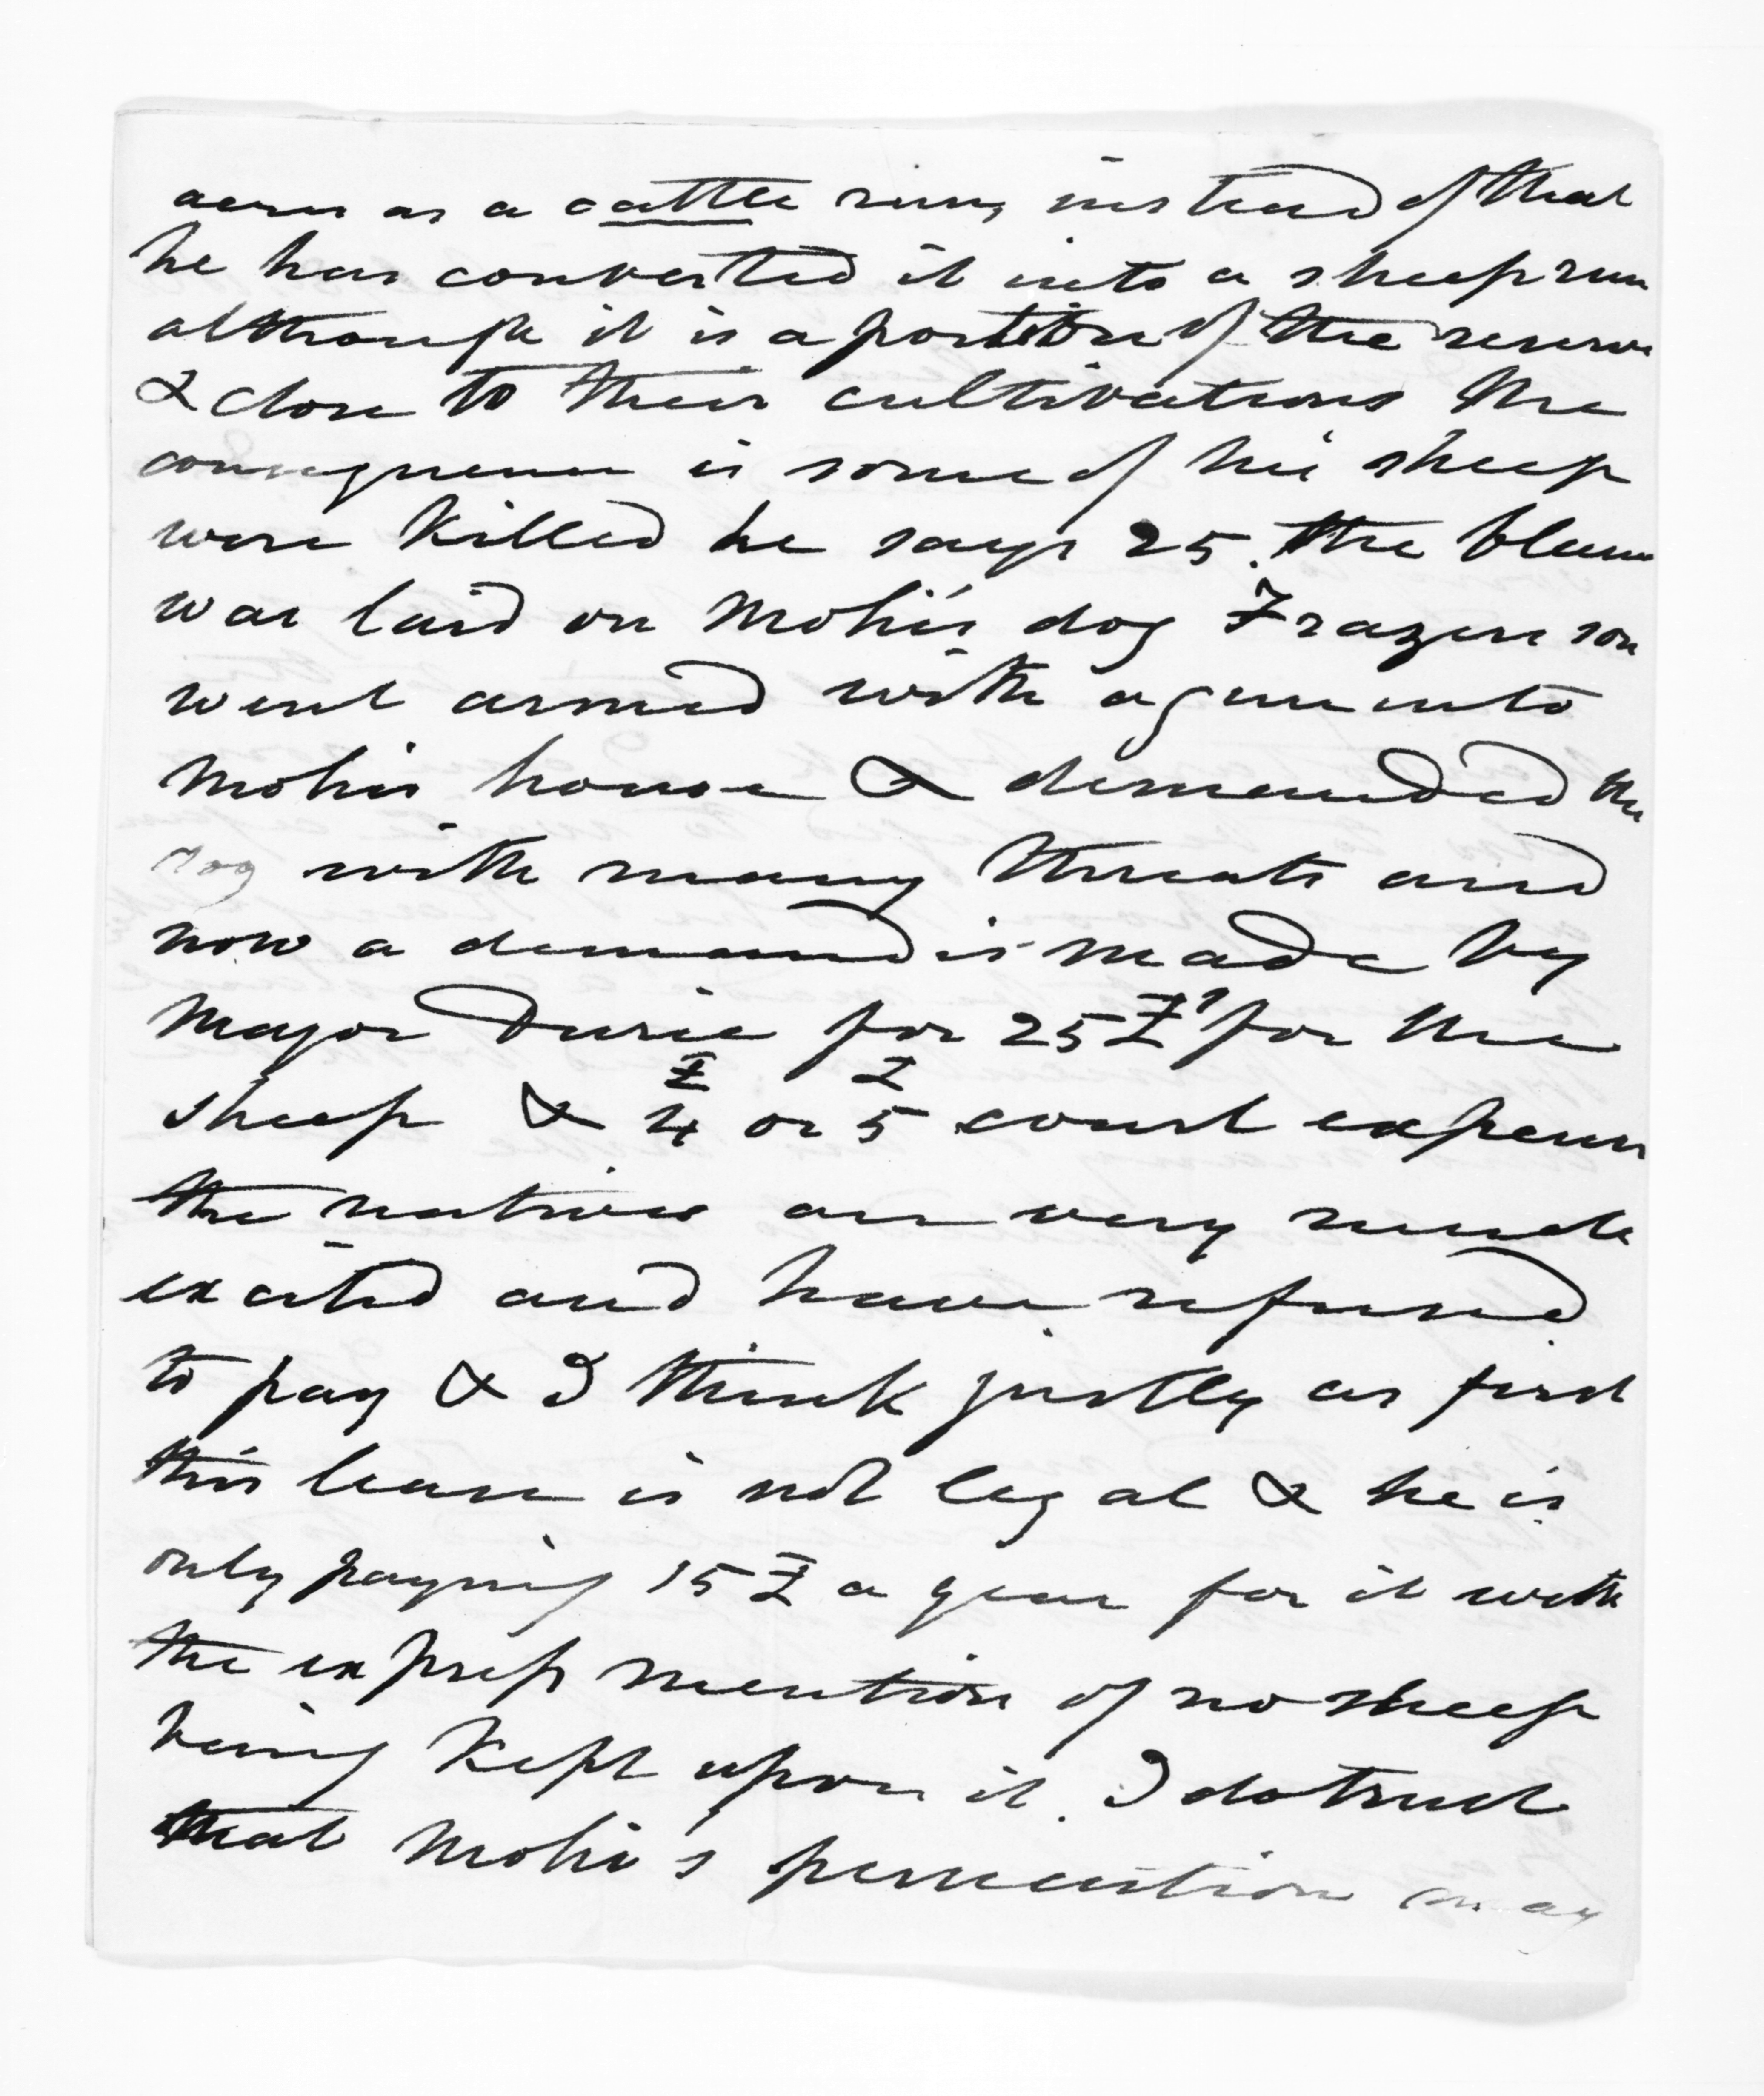 acres as a cattle run, instead of that
he has converted it into a sheep run
although it is a portion of the reserve
& close to their cultivations the
consequence is some of his sheep
were killed he says 25. the blame
was laid on Mohi's dog Frazers son
went armed with a gun into
Mohis house & demanded the
dog with many threats and
now a demand is made by
Major Durie for 25£ for the
sheep & 4£ or 5£ court expenses
the natives are very much
excited and have refused
to pay & I think justly as first
this lease is not legal & he is
only paying 15£ a year for it with
the express mention of no sheep
being kept upon it. I do trust
that Mohi's persecution may